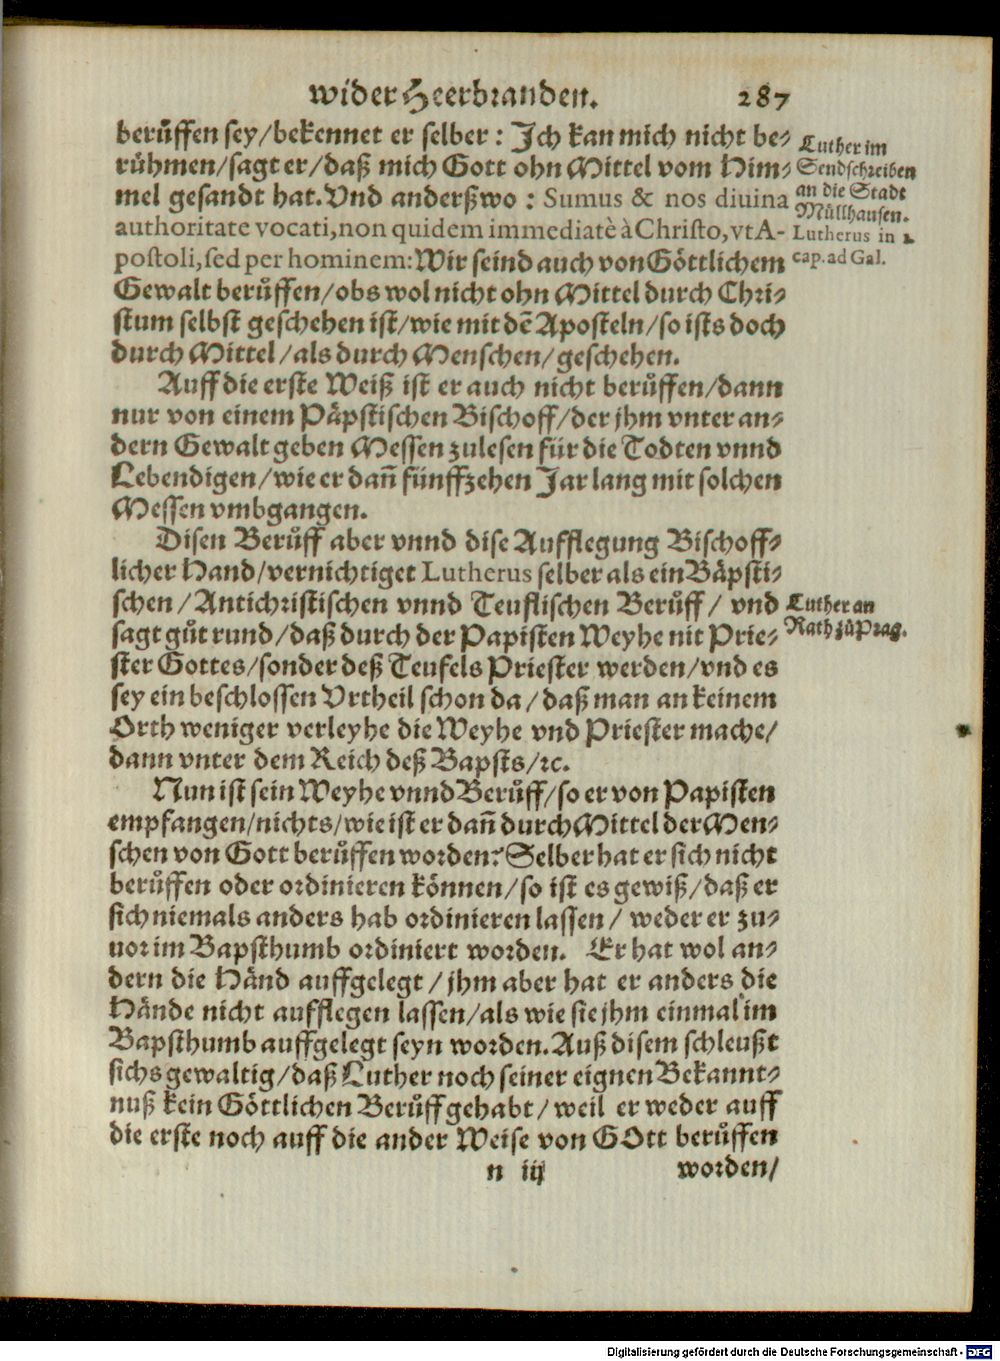 wider Heerbranden. 287
berůffen sey/bekennet er selber: Jch kan mich nicht be-
růhmen/sagt er/daß mich Gott ohn Mittel vom Him-
mel gesandt hat. Vnd anderßwo: Sumus & nos diuina
authoritate vocati, non quidem immediatè à Christo, vt A-
postoli, sed per hominem: Wir seind auch von Göttlichem
Gewalt berůffen/obs wol nicht ohn Mittel durch Chri-
stum selbst geschehen ist/wie mit dẽ Aposteln/so ists doch
durch Mittel/als durch Menschen/geschehen.
Luther im
Sendschreiben
an die Stadt
Müllhausen.
Lutherus in 1.
cap. ad Gal.
Auff die erste Weiß ist er auch nicht berůffen/dann
nur von einem Päpstischen Bischoff/der jhm vnter an-
dern Gewalt geben Messen zulesen für die Todten vnnd
Lebendigen/wie er dañ fünffzehen Jar lang mit solchen
Messen vmbgangen.
Disen Berůff aber vnnd dise Aufflegung Bischoff-
licher Hand/vernichtiget Lutherus selber als ein Bäpsti-
schen/Antichristischen vnnd Teuflischen Berůff/ vnd
sagt gůt rund/daß durch der Papisten Weyhe nit Prie-
ster Gottes/sonder deß Teufels Priester werden/vnd es
sey ein beschlossen Vrtheil schon da/daß man an keinem
Orth weniger verleyhe die Weyhe vnd Priester mache/
dann vnter dem Reich deß Bapsts/ꝛc.
Luther an
Rath zů Prag.
Nun ist sein Weyhe vnnd Berůff/so er von Papisten
empfangen/nichts/wie ist er dañ durch Mittel der Men-
schen von Gott berůffen worden? Selber hat er sich nicht
berůffen oder ordinieren können/so ist es gewiß/daß er
sich niemals anders hab ordinieren lassen/ weder er zu-
uor im Bapsthumb ordiniert worden. Er hat wol an-
dern die Händ auffgelegt/jhm aber hat er anders die
Hände nicht aufflegen lassen/als wie sie jhm einmal im
Bapsthumb auffgelegt seyn worden. Auß disem schleußt
sichs gewaltig/daß Luther noch seiner eignen Bekannt-
nuß kein Göttlichen Berůff gehabt/weil er weder auff
die erste noch auff die ander Weise von GOtt berůffen
n iij worden/
Digitalisierung gefördert durch die Deutsche Forschungsgemeinschaft - DFG